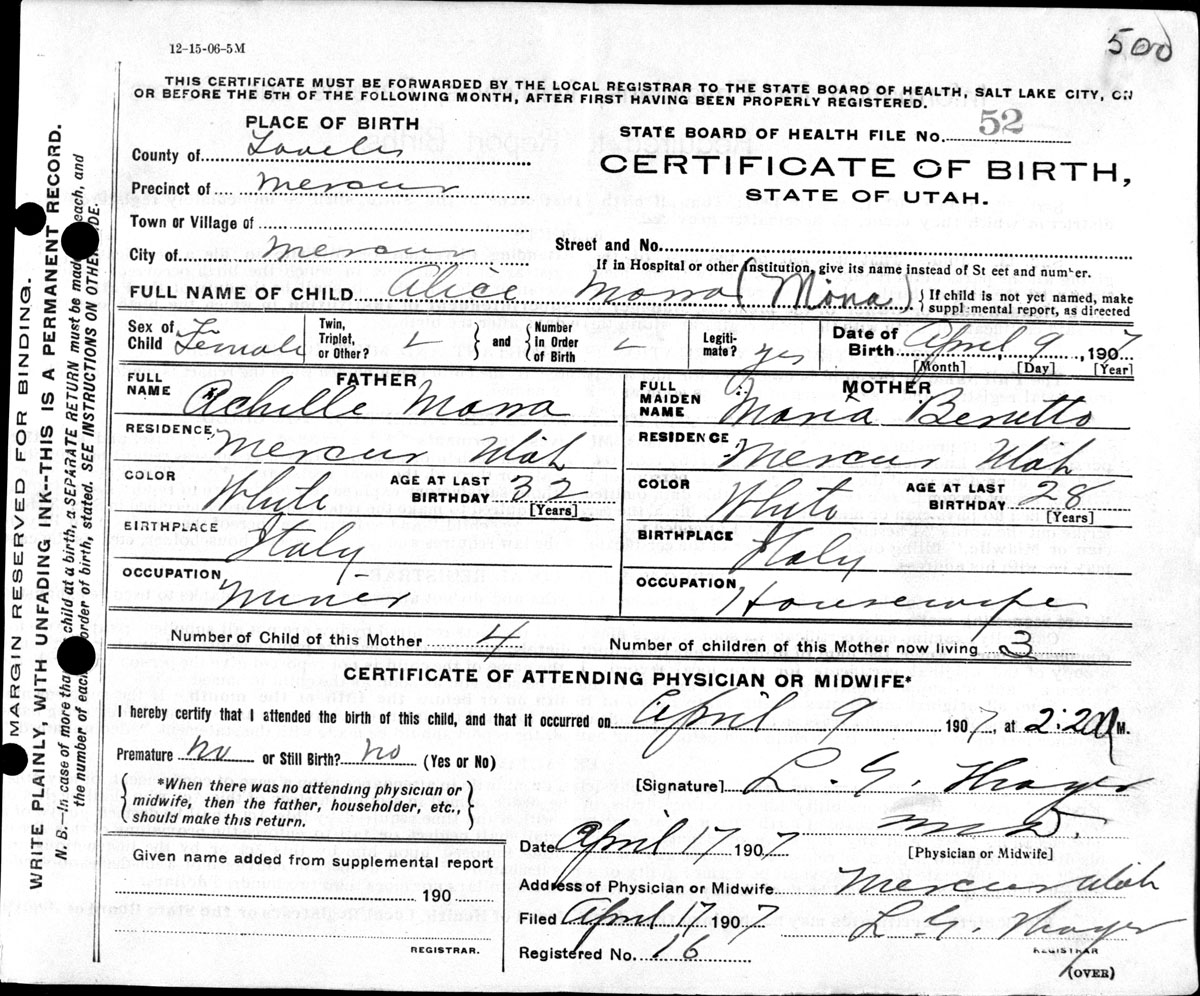 12-15-06-5M
500
THIS CERTIFICATE MUST BE FORWARDED BY THE LOCAL REGISTRAR TO THE STATE BOARD OF HEALTH, SALT LAKE CITY, ON
OR BEFORE THE 5TH OF THE FOLLOWING MONTH, AFTER FIRST HAVING BEEN PROPERLY REGISTERED.
PLACE OF BIRTH
STATE BOARD OF HEALTH FILE No. 52
County of
CERTIFICATE OF BIRTH,
STATE OF UTAH.
Precinct of Mercur
Town or Village of
Street and No.
City of Mercur
If in Hospital or other Institution, give its name instead of St eet and number.
FULL NAME OF CHILD Alice Morra (Mona) {If child is not yet named, make supplmental report, as directed
Sex of Child Female Twin, Triplet, or Other? and {Number in Order of Birth Legiti- mate? yes Date of Birth April 9, 1907
[Month] [Day] [Year]
FATHER
MOTHER
FULL NAME Achille Morra
FULL MAIDEN NAME Maria
RESIDENCE Mercur Utah
RESIDENCE Mercur Utah
COLOR White AGE AT LAST BIRTHDAY 32 [Years]
COLOR White AGE AT LAST BIRTHDAY 28 [Years]
BIRTHPLACE Italy
BIRTHPLACE Italy
OCCUPATION Miner
OCCUPATION Housewife
Number of Child of this Mother 4 Number of children of this Mother now living 3
CERTIFICATE OF ATTENDING PHYSICIAN OR MIDWIFE*
I hereby certify that I attended the birth of this child, and that it occurred on April 9 1907, at 2:20 M.
Premature no or Still Birth? no (Yes or No)
{*When there was no attending physician or
midwife, then the father, householder, etc.,
should make this return.}
[Signature] L. G. Thayer
M D.
Date April 17 1907 [Physician or Midwife]
Given name added from supplemental report
190
REGISTRAR.
Address of Physician or Midwife Mercur Utah
Filed April 17 1907 L. G. Thayer
Registered No. 16 REGISTRAR
(OVER)
MARGIN RESERVED FOR BINDING.
WRITE PLAINLY, WITH UNFADING INK---THIS IS A PERMANENT RECORD.
N. B.—In case of more tha child at a birth, a SEPARATE RETURN must be mad each, and
the number of each order of birth, stated. SEE INSTRUCTIONS ON OTHER IDE.